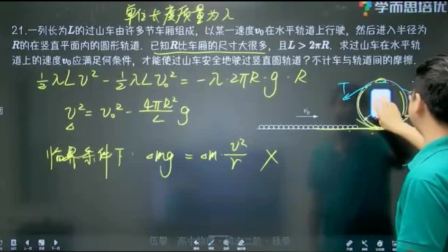 单位长度质量为λ
学而思培优
21.一列长为L的过山车由许多节车厢组成，以某一速度v₀在水平轨道上行驶，然后进入半径为
R的在竖直平面内的圆形轨道。已知R比车厢的尺寸大很多，且L＞2πR，求过山车在水平轨
道上的速度v₀应满足何条件，才能使过山车安全地驶过竖直圆轨道？不计车与轨道间的摩擦。
½λLv² − ½λLv₀² = −λ·2πR·g·R
T
v² = v₀² − 4πR²/L g
v₀
临界条件下： Δmg = Δm v²/r ×